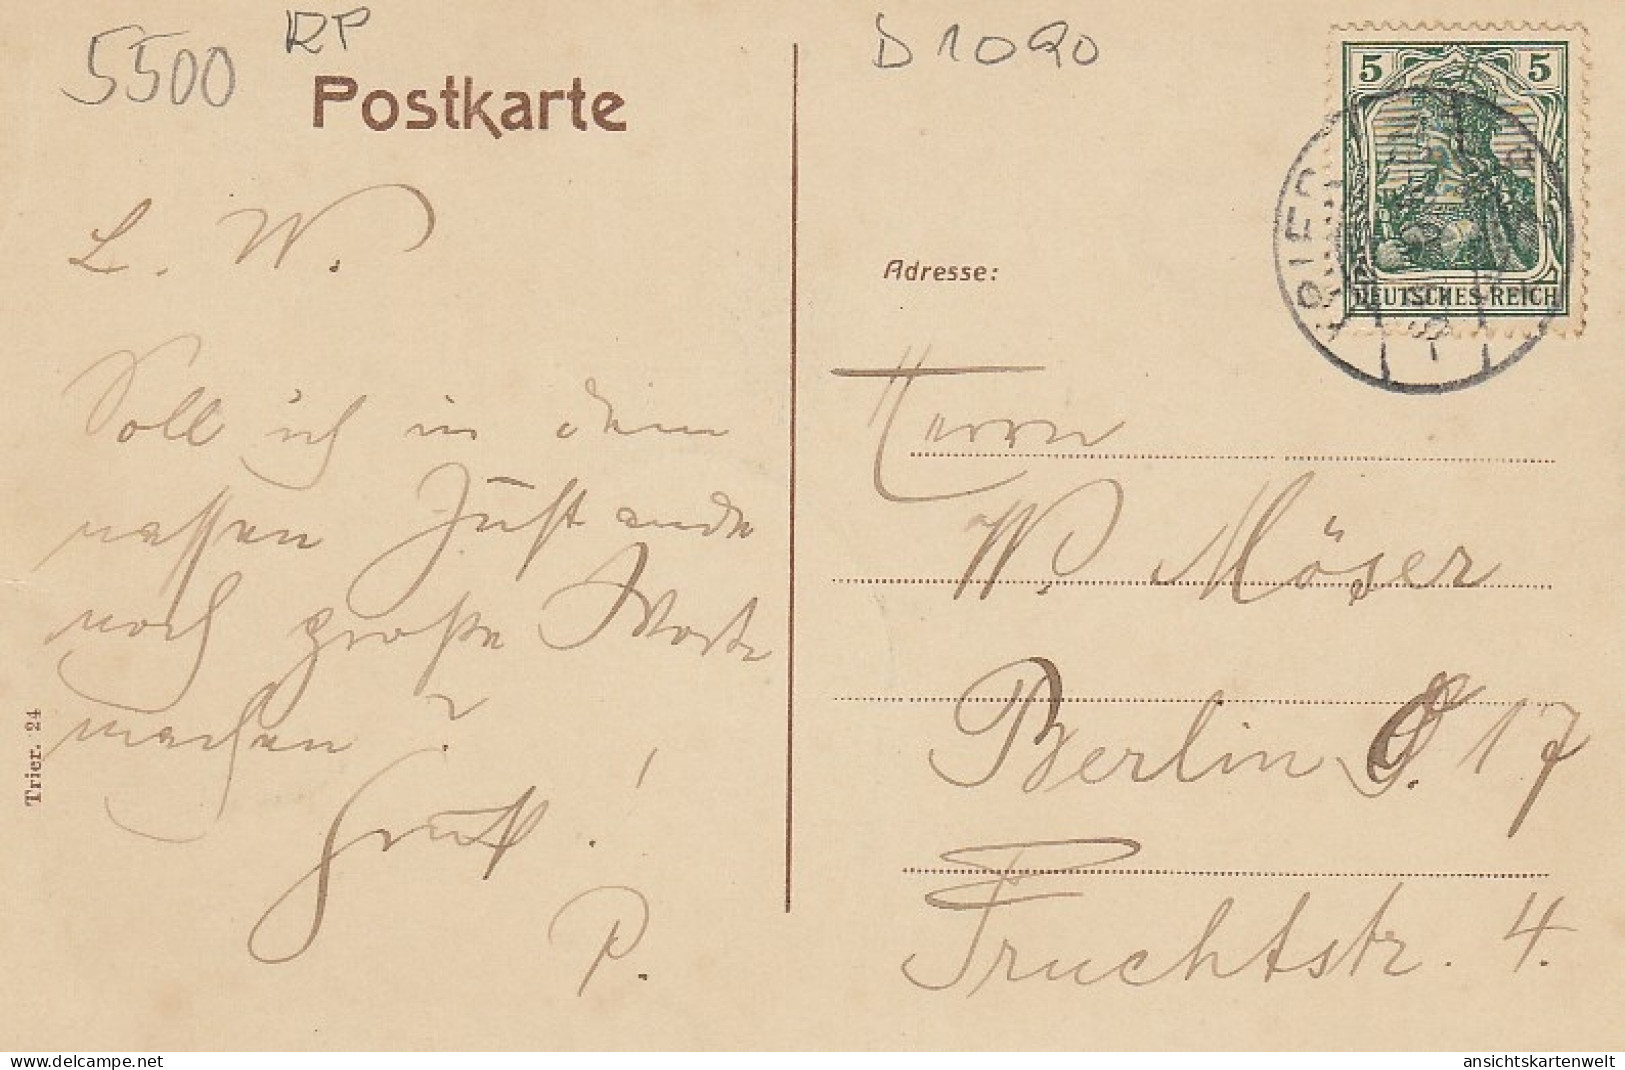 5500
RP
D 1090
Postkarte
5 5
DEUTSCHES REICH
TRIER
L. W.
Soll ich in dem
nassen Zustande
noch große Worte
machen?
Gruß!
P.
Trier. 24
Adresse:
Herrn
W. Möser
Berlin O. 17
Fruchtstr. 4.
delcampe.net
ansichtskartenwelt